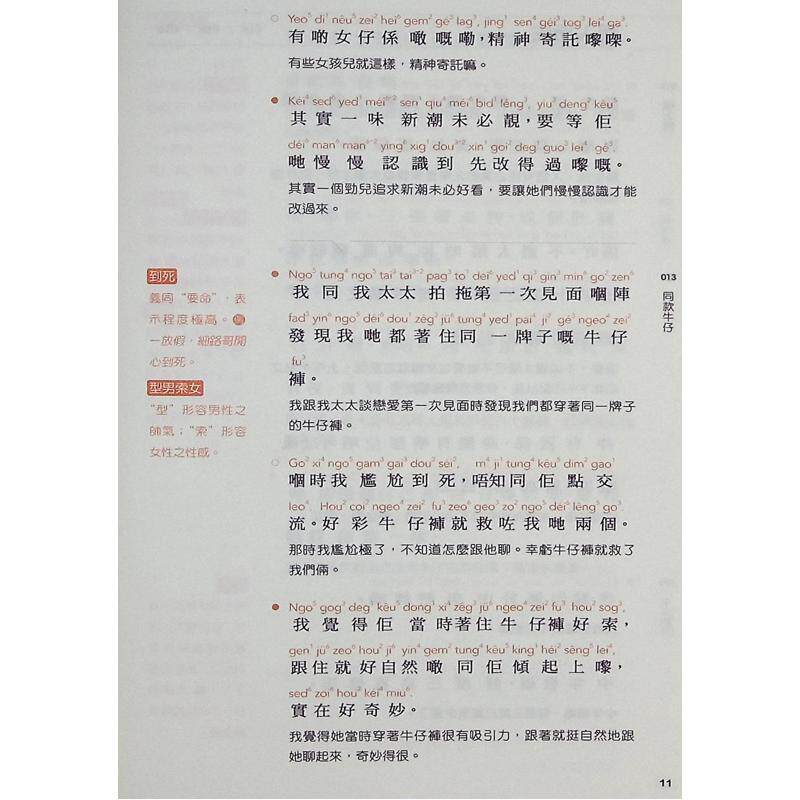 Yeo⁵ di¹ nêu⁵ zei² hei⁶ gem² gé³ lag³, jing¹ sen⁴ géi³ tog³ lei⁴ ga³.
有啲女仔係噉嘅嘞，精神寄託嚟㗎。
有些女孩兒就這樣，精神寄託嘛。
Kéi⁴ sed⁶ yed¹ méi⁶⁻² sen¹ qiu⁴ méi⁶ bid¹ lêng³, yiu³ deng² kêu⁵
其實一味新潮未必靚，要等佢
déi⁶ man⁶ man⁶⁻² ying⁶ xig¹ dou³⁻² xin¹ goi² deg¹ guo³ lei⁴ gé³.
哋慢慢認識到先改得過嚟嘅。
其實一個勁兒追求新潮未必好看，要讓她們慢慢認識才能
改過來。
Ngo⁵ tung⁴ ngo⁵ tai³ tai³⁻² pag³ to¹ déi⁶ yed¹ qi³ gin³ min⁶ go² zen⁶
我同我太太拍拖第一次見面嗰陣
fad³ yin⁶ ngo⁵ déi⁶ dou¹ zêg³ jü⁶ tung⁴ yed¹ pai⁴ ji² gé³ ngeo⁴ zei²
發現我哋都著住同一牌子嘅牛仔
fu³.
褲。
我跟我太太談戀愛第一次見面時發現我們都穿著同一牌子
的牛仔褲。
Go² xi⁴ ngo⁵ gam³ gai³ dou³ séi², m⁴ ji¹ tung⁴ kêu⁵ dim² gao¹
嗰時我尷尬到死，唔知同佢點交
leo⁴. Hou² coi² ngeo⁴ zei² fu³ zeo⁶ geo³ zo² ngo⁵ déi⁶ lêng⁵ go³.
流。好彩牛仔褲就救咗我哋兩個。
那時我尷尬極了，不知道怎麼跟他聊。幸虧牛仔褲就救了
我們倆。
Ngo⁵ gog³ deg¹ kêu⁵ dong¹ xi⁴ zêg³ jü⁶ ngeo⁴ zei² fu³ hou² sog³,
我覺得佢當時著住牛仔褲好索，
gen¹ jü⁶ zeo⁶ hou² ji⁶ yin⁴ gem² tung⁴ kêu⁵ king¹ héi² sêng⁵ lei⁴,
跟住就好自然噉同佢傾起上嚟，
sed⁶ zoi⁶ hou² kéi⁴ miu⁶.
實在好奇妙。
我覺得她當時穿著牛仔褲很有吸引力，跟著就挺自然地跟
她聊起來，奇妙得很。
到死
義同“要命”，表
示程度極高。例
一放假，細路哥開
心到死。
型男索女
“型”形容男性之
帥氣；“索”形容
女性之性感。
013
同款牛仔
11